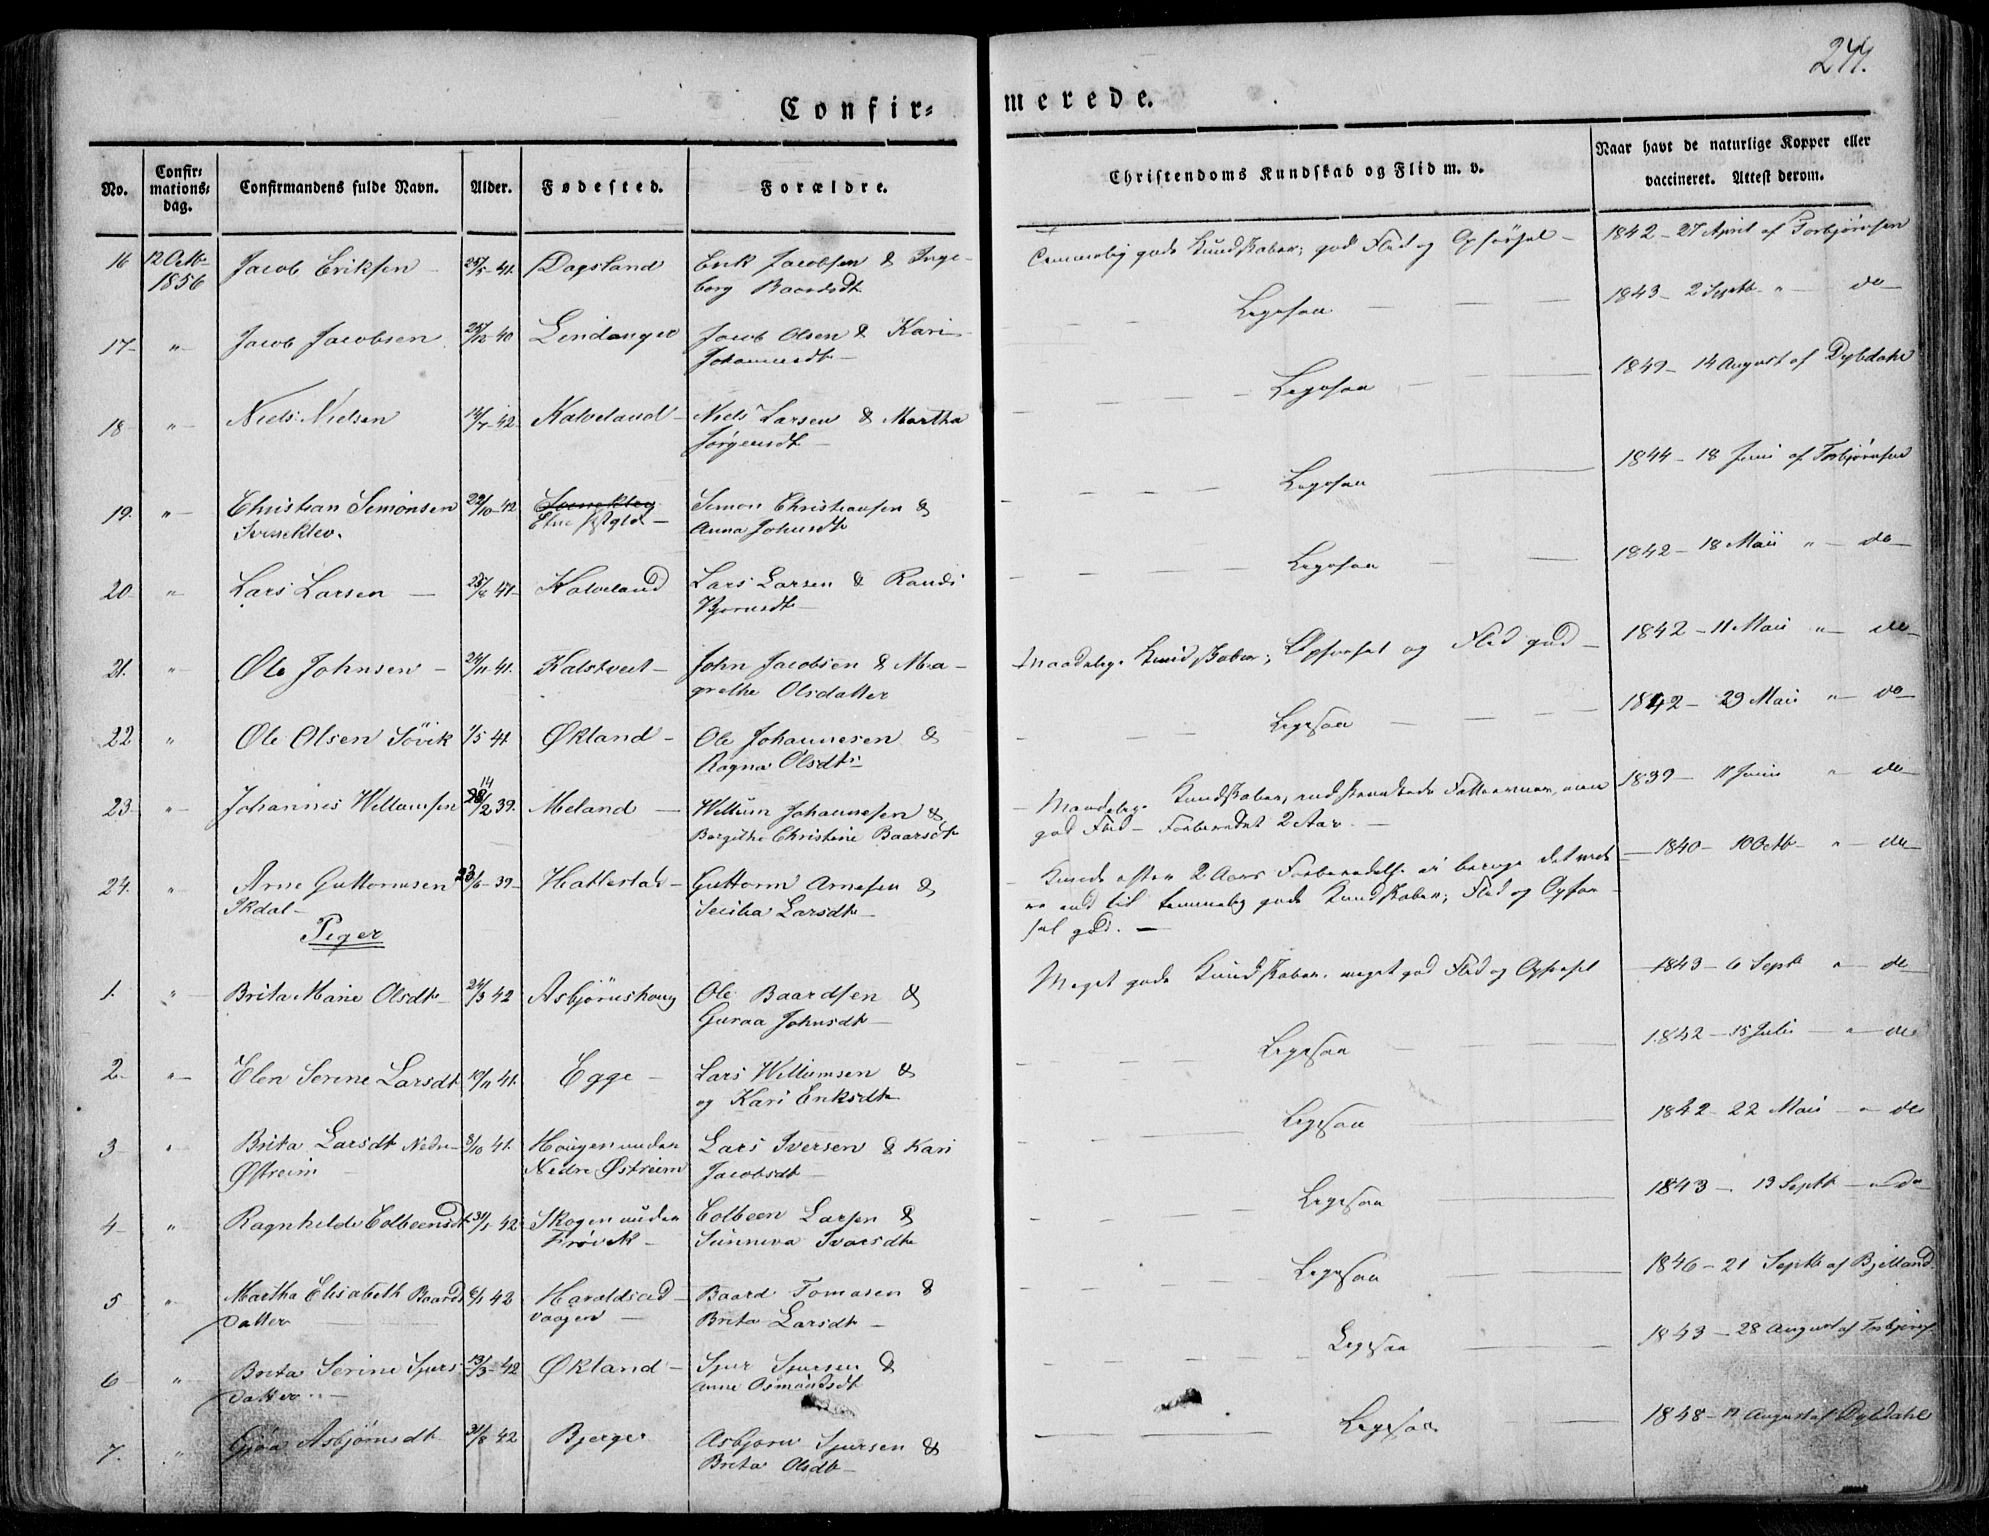 244.
Confir-
merede.
No.
Confir-
mations-
dag.
Confirmandens fulde Navn.
Alder.
Fødested.
Forældre.
Christendoms Kundskab og Flid m. v.
Naar havt de naturlige Kopper eller
vaccineret. Attest derom.
16 12 Octb. Jacob Eriksen - 41. Dagsland Erik Jacobsen & Inge-
1856 borg Baardsdt.
Temmelig gode Kundskaber; god Flid og Opførsel - 1842 - 27 April af Torbjørnsen
17 - " - Jacob Jacobsen 40 Lindanger Jacob Olsen & Kari
Johannesdt -
Ligesaa 1843 - 2 Septb. " - do -
18 " - Niels Nielsen 42 Kalveland - Niels Larsen & Martha
Jørgensdt -
Ligesaa 1849 - 14 August af Dybdahl
19. " - Christian Simonsen 22/10 - 42 Etne Simon Christiansen &
Svensklev. Anna Johnsdt
Ligesaa 1844 - 18 Juni af Torbjørnsen
20 - " Lars Larsen - Kalveland Lars Larsen & Randi
Bjørnsdt -
Ligesaa 1842 - 18 Maii " - do -
21. " Ole Johnsen - 24/11 41. Kalstveit - John Jacobsen & Ma-
grethe Olsdatter
Maadelige Kundskaber; Opførsel og Flid god - 1842 - 11 Maii " - do -
22 " Ole Olsen Søvik 1/5 41 Økland - Ole Johannesen &
Ragna Olsdt -
Ligesaa 1842 - 29 Maii " - do -
23 - " - Johannes Willumsen 14/2 39. Meland - Willum Johannesen &
Bergithe Christine Baarsdt
- Maadelige Kundskaber, indskrænkede Fatteevner, men
god Flid - Forberedet 2 Aar. -
1839 - Juni " - do -
24. " Arne Guttormsen 23/6 - 39 - Hattestad - Guttorm Arnesen &
Ikdal - Secilia Larsdt -
- Kunde efter 2 Aars Forberedelse ei bringe det vide
re end til temmelig gode Kundskaber; Flid og Opfør
sel god. -
1840 - 10 Octb - " - do -
Piger
1. " - Brita Marie Olsdt - 24/3 42 Asbjørnshaug Ole Baardsen &
Guroa Johnsdt -
Meget gode Kundskaber. meget god Flid og Opførsel 1843 - 6 Septb " - do -
2 - " - Elen Serine Larsdt 41. Egge - Lars Willumsen &
og Kari Eriksdt
Ligesaa 1842 - 15 Juli - " - do
3 " Brita Larsdt Nedre - 3/10 41. Haugen under Lars Iversen & Kari
Østreim - Nedre Østreim Jacobsdt -
Ligesaa 1842 - 22 Maii - " do
4 - " Ragnhilde Colbeensdt 31/1 42 Skogen under Colbeen Larsen &
Frøvik - Sunneva Ivarsdt
Ligesaa 1843 - 13 Septb - " do -
5 " - Martha Elisabeth Baards 6/1 42 Haraldseid- Baard Tomasen &
datter - vaagen - Brita Larsdt -
Ligesaa 1846 - 21 Septb af Bjelland.
6 - " Brita Serine Sjurs- 13/3 - 42 Økland - Sjur Sjursen &
datter - Anne Osmundsdt
Ligesaa 1843 - 28 August af Torbjørns.
7. " Gjøa Asbjørnsdt 31/8 42 Bjerge Asbjørn Sjursen &
Brita Olsdt -
Ligesaa 1848 - August af Dybdahl